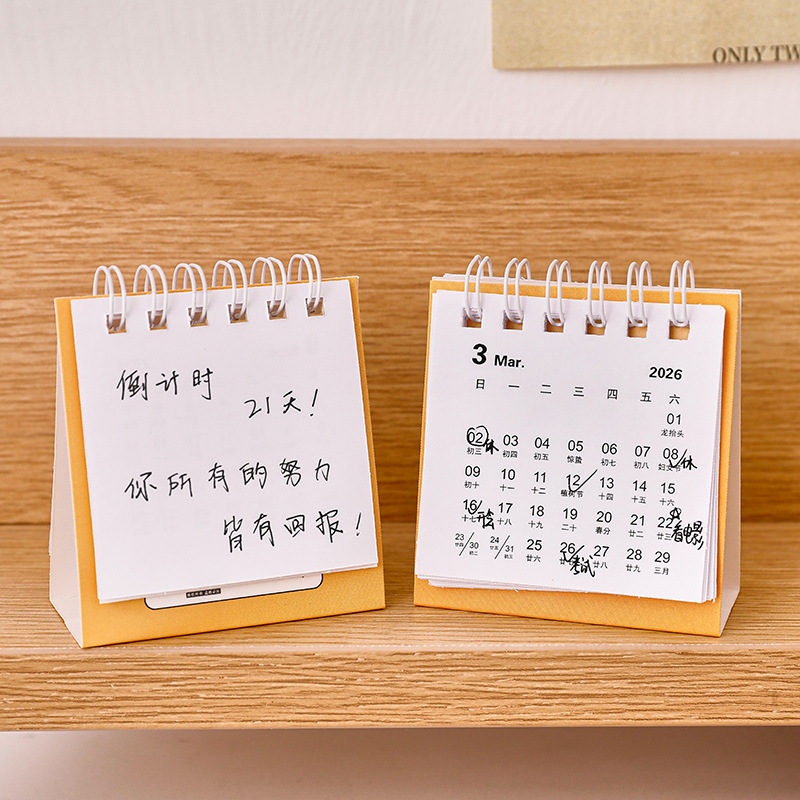 ONLY TW
倒计时
21天!
你所有的努力
皆有回报!
3 Mar. 2026
日 一 二 三 四 五 六
01
龙抬头
02 休 03 04 05 06 07 08 休
初三 初四 初五 惊蛰 初七 初八 妇女节
09 10 11 12 13 14 15
初十 十一 十二 植树节 十四 十五 十六
16 17 18 19 20 21 22 看电影
十七 十八 十九 二十 春分 廿二 廿三
23/30 24/31 25 26 考试 27 28 29
廿四 初二 廿五 初三 廿六 廿八 廿九 三月